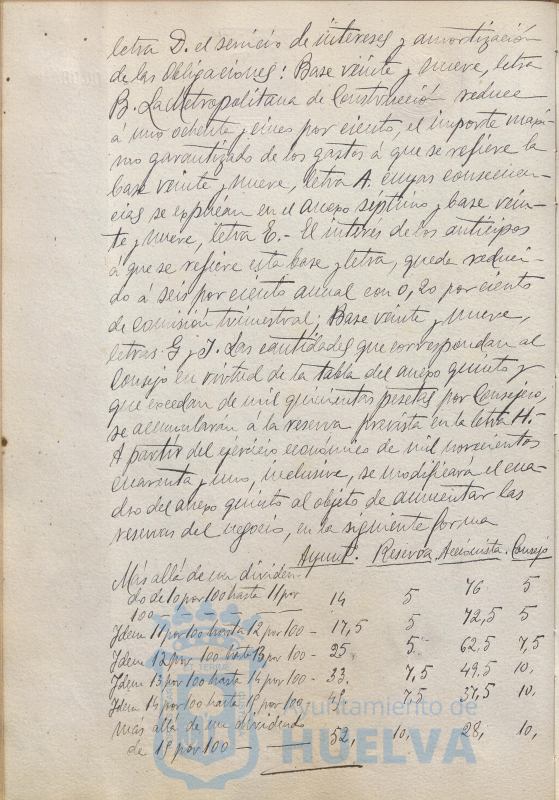 letra D. el servicio de intereses y amortización
de las Obligaciones: Base veinte y nueve, letra
B. La Metropolitana de Construcción reduce
á uno ochenta y cinco por ciento, el importe máxi-
mo garantizado de los gastos á que se refiere la
base veinte y nueve, letra A. cuyas consecuen-
cias se expresan en el anexo séptimo y base vein-
te y nueve, letra E.- El interés de los anticipos
á que se refiere esta base y letra, queda reduci-
do á seis por ciento anual con 0,20 por ciento
de comisión trimestral; Base veinte y nueve,
letras G y J. Las cantidades que correspondan al
Consejo en virtud de la tabla del anexo quinto y
que excedan de mil quinientas pesetas por Consejero,
se acumularán á la reserva prevista en la letra H.-
A partir del ejercicio económico de mil novecientos
cuarenta y uno, inclusive, se modificará el cua-
dro del anexo quinto al objeto de aumentar las
reservas del negocio, en la siguiente forma
Ayunt.º Reserva Accionista Consejo
Más allá de un dividen-
do de 10 por 100 hasta 11 por
100 - - - - 14 5 76 5
Idem 11 por 100 hasta 12 por 100 - 17,5 5 72,5 5
Idem 12 por 100 hasta 13 por 100 - 25 5 62,5 7,5
Idem 13 por 100 hasta 14 por 100 - 33 7,5 49,5 10,
Idem 14 por 100 hasta 15 por 100 - 45 7,5 37,5 10,
Más allá de un dividendo
de 15 por 100 - - 52, 10, 28, 10,
Ayuntamiento de
HUELVA